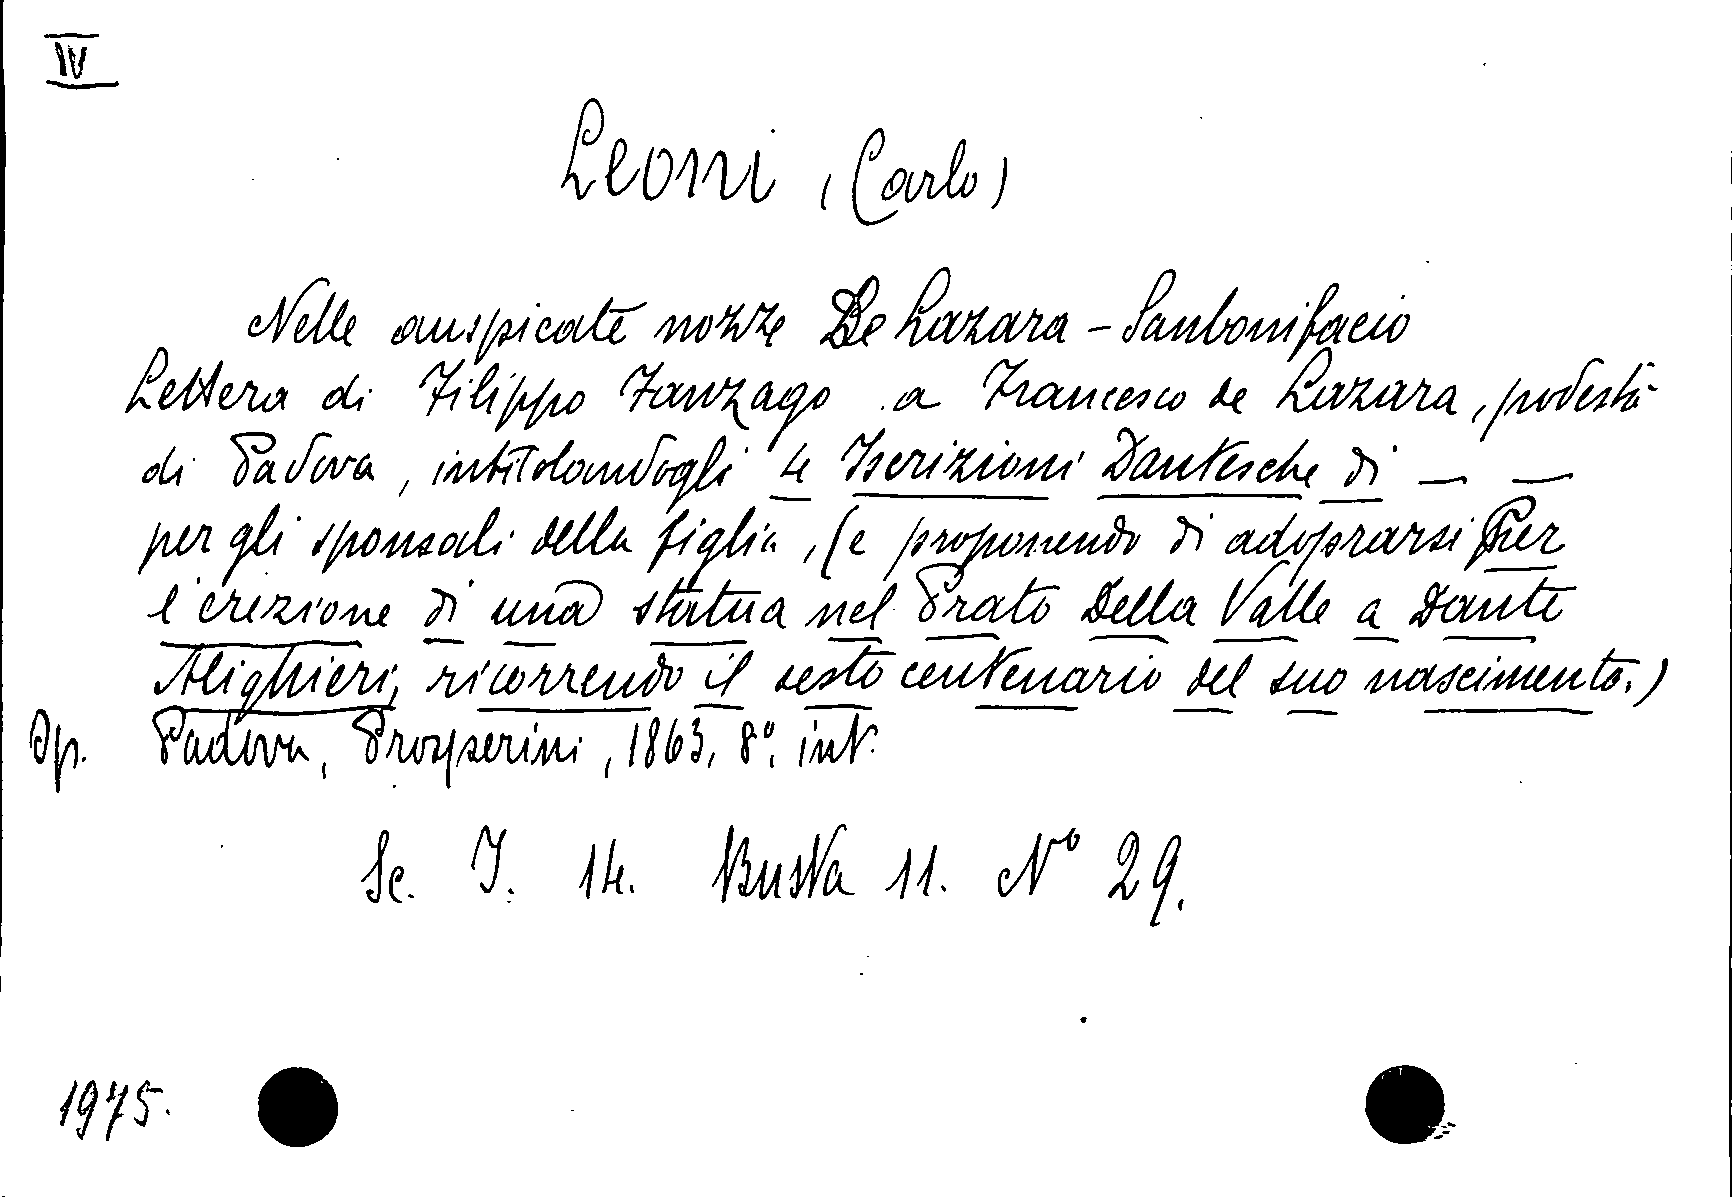 IV
Leoni, (Carlo)
Nelle auspicate nozze De Lazara - Sanbonifacio
Lettera di Filippo Fanzago a Francesco de Lazara, podestà
di Padova, intitolandogli 4 Iscrizioni Dantesche di — —
per gli sponsali della figlia, (e proponendo di adoprarsi per
l'erezione di una statua nel Prato Della Valle a Dante
Alighieri, ricorrendo il sesto centenario del suo nascimento.)
Op. Padova, Prosperini, 1863, 8º, int.
Sc. I. 14. Busta 11. Nº 29.
1975.